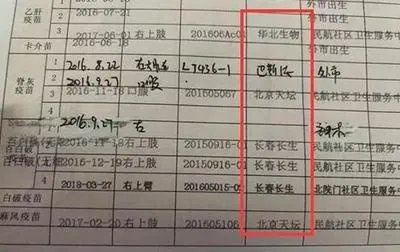 乙肝疫苗 2016-07-21 外市出生
2017-06-01 右上肢 201606Ac01 华北生物 民航社区卫生服务中
卡介苗 2016-06-18 外市出生
脊灰疫苗 1 2016.8.22 右 L7436-1 巴斯德 外市
2 2016.9.27 口服
3 2016-11-18 口服 201505057 北京天坛 民航社区卫生服务中
2016.9.27 右
百白破(无细 2016-11-18 右上肢 20150916-01 长春长生 民航社区卫生服务中
百白破(无细 2016-12-19 右上肢 20150916-01 长春长生 民航社区卫生服务中
4 2018-03-27 右上臂 201605015-05 长春长生 北院门社区卫生服务
白破疫苗
麻风疫苗 2017-02-20 右上肢 201605106 北京天坛 民航社区卫生服务中